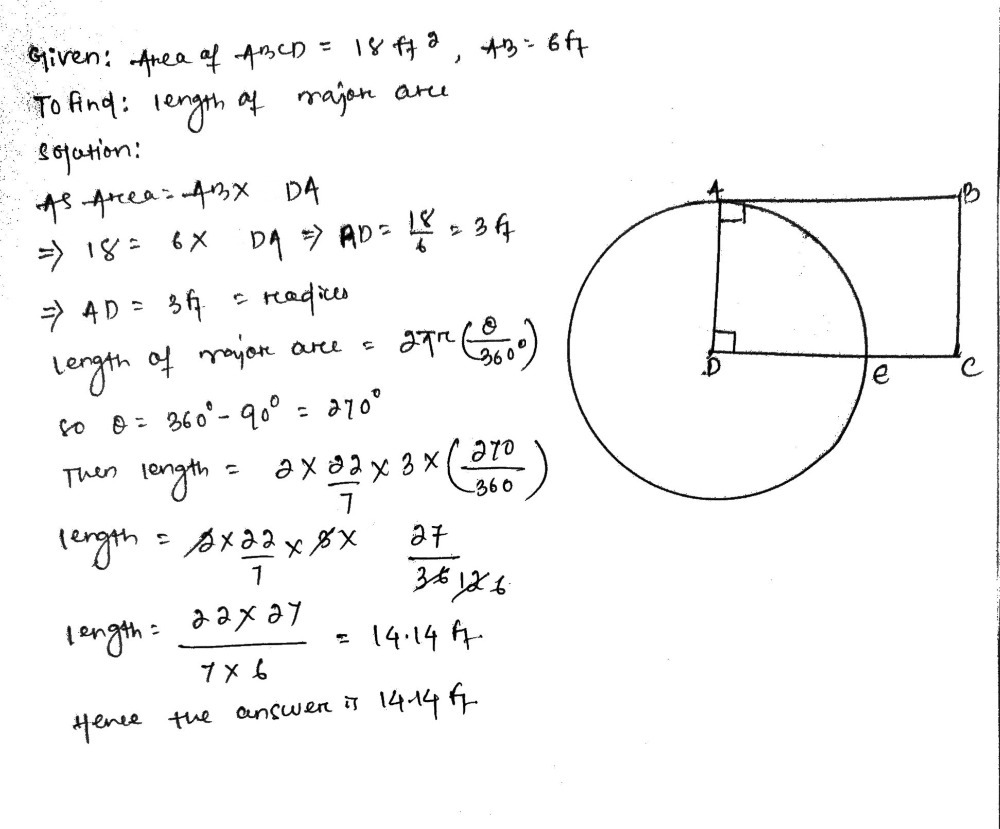 Given: Area of ABCD = 18 ft 2, AB = 6 ft
To find: length of major arc
Solution:
As Area = AB X DA
⇒ 18 = 6 X DA ⇒ AD = 18/6 = 3 ft
⇒ AD = 3 ft = radius
length of major arc = 2πr (θ/360°)
so θ = 360° - 90° = 270°
Then length = 2 X 22/7 X 3 X (270/360)
length = 2 X 22/7 X 3 X 27/36 12 6
length = 22 X 27/7 X 6 = 14.14 ft.
Hence the answer is 14.14 ft
A
B
D
e
C